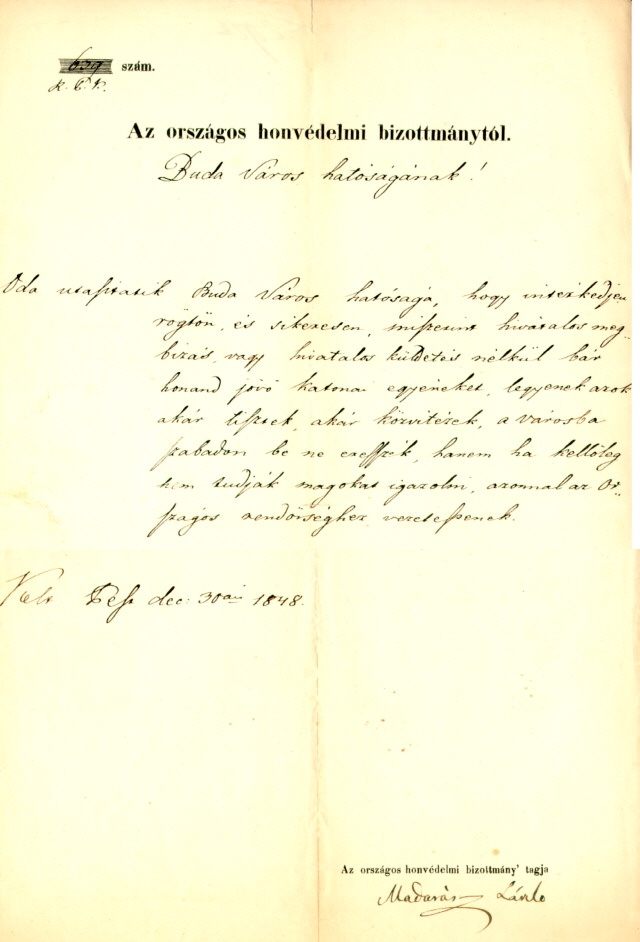 639 szám.
Az országos honvédelmi bizottmánytól.
Buda Város hatóságának!
Oda utasitatik Buda Város hatósága, hogy intézkedjen
rögtön, és sikeresen, miszerint hivatalos meg„
bizás, vagy hivatalos küldetés nélkül bár
honand jövő katonai egyéneket, legyenek azok
akár tisztek, akár közvitézek, a városba
szabadon be ne eresszék, hanem ha kellőleg
nem tudják magokat igazolni, azonnal az Or„
szágos rendőrséghez vezetessenek.
Kelt Pest dec: 30án 1848.
Az országos honvédelmi bizottmány' tagja
Madarász László